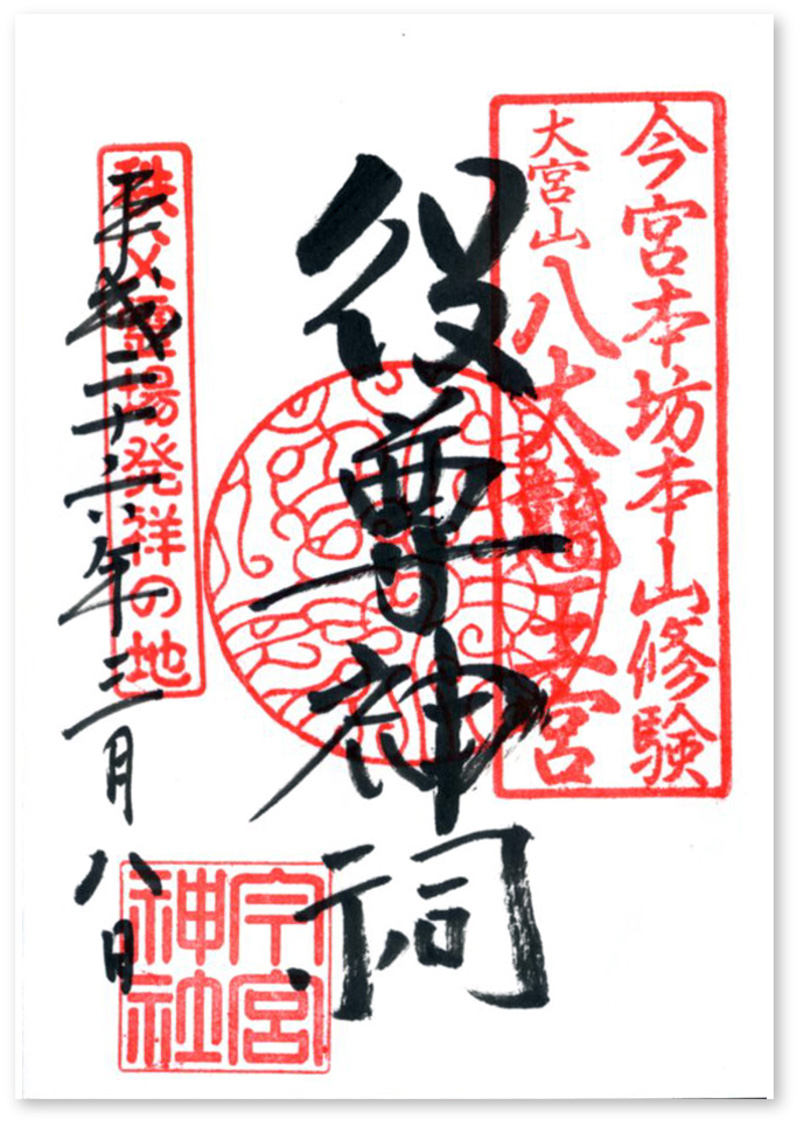 今宮本坊本山修験
大宮山八大龍王宮
役尊神祠
秩父霊場発祥の地
平成二十六年三月八日
今宮神社